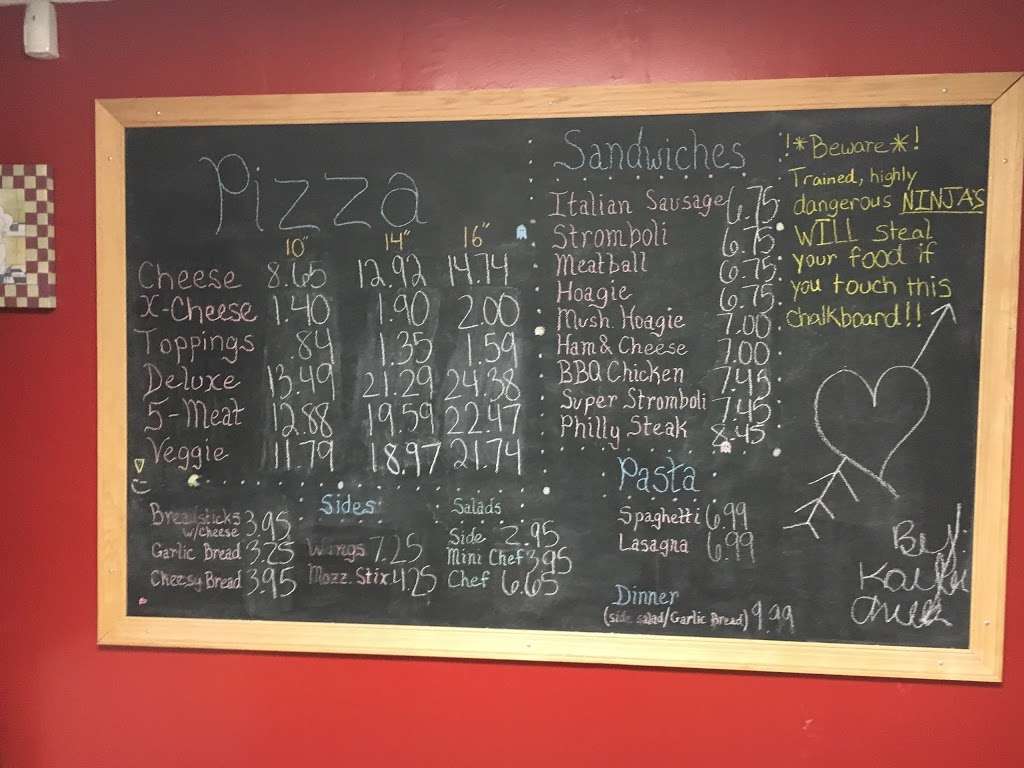 Pizza
10" 14" 16"
Cheese 8.65 12.92 14.74
X-Cheese 1.40 1.90 2.00
Toppings .84 1.35 1.59
Deluxe 13.49 21.29 24.38
5-Meat 12.88 19.59 22.47
Veggie 11.79 18.97 21.74
Sides
Breadsticks w/cheese 3.95
Garlic Bread 3.25
Cheesy Bread 3.95
Wings 7.25
Mozz. Stix 4.25
Salads
Side 2.95
Mini Chef 3.95
Chef 6.65
Sandwiches
Italian Sausage 6.75
Stromboli 6.75
Meatball 6.75
Hoagie 6.75
Mush. Hoagie 7.00
Ham & Cheese 7.00
BBQ Chicken 7.45
Super Stromboli 7.45
Philly Steak 8.45
Pasta
Spaghetti 6.99
Lasagna 6.99
Dinner
(side salad/Garlic Bread) 9.99
!*Beware*!
Trained, highly
dangerous NINJA'S
WILL steal
your food if
you touch this
chalkboard!!